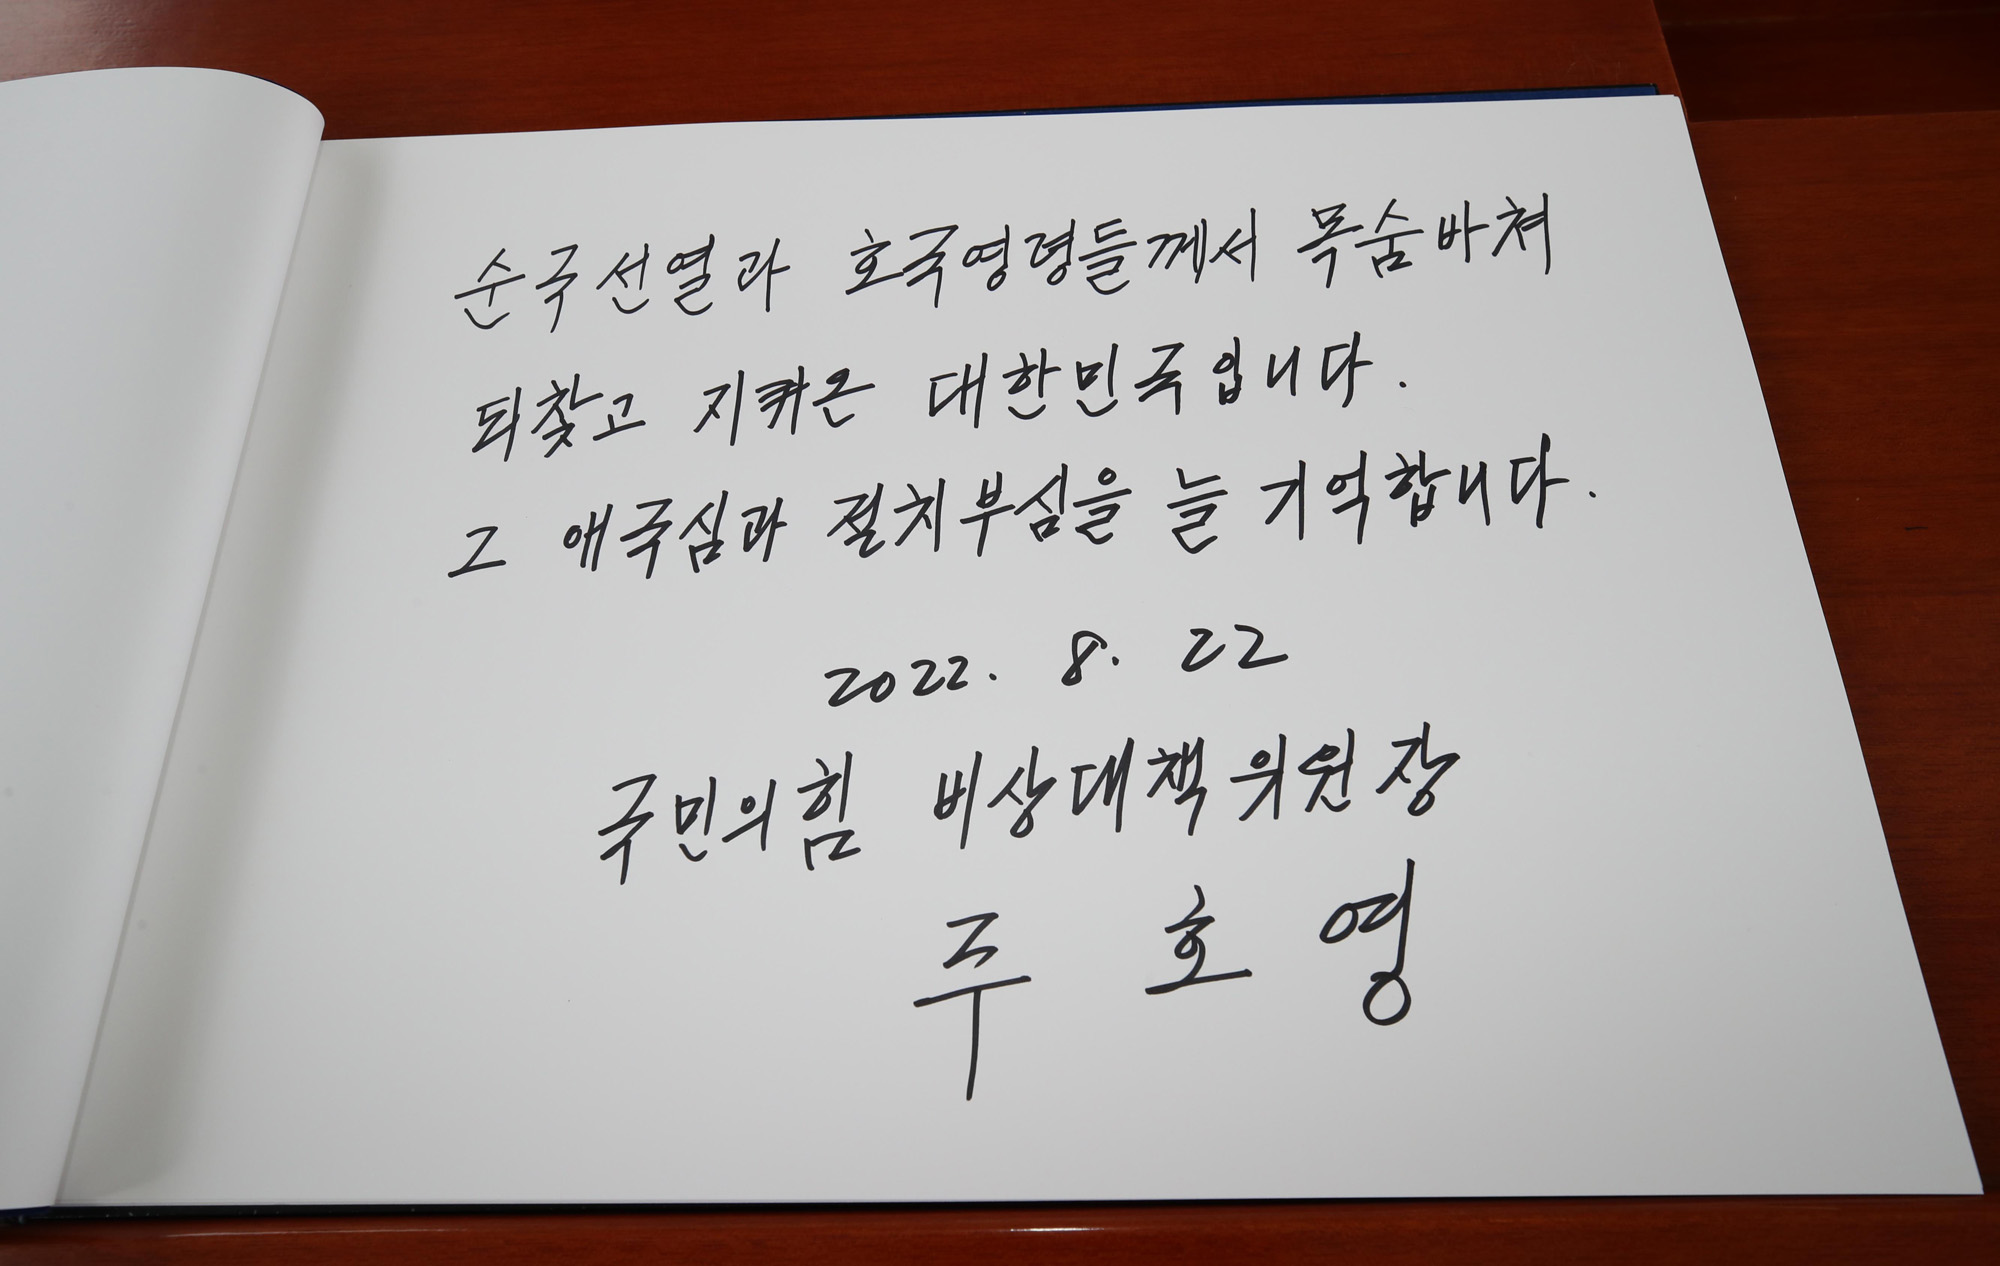 순국선열과 호국영령들께서 목숨바쳐
되찾고 지켜온 대한민국입니다.
그 애국심과 절치부심을 늘 기억합니다.
2022. 8. 22
국민의힘 비상대책위원장
주 호 영